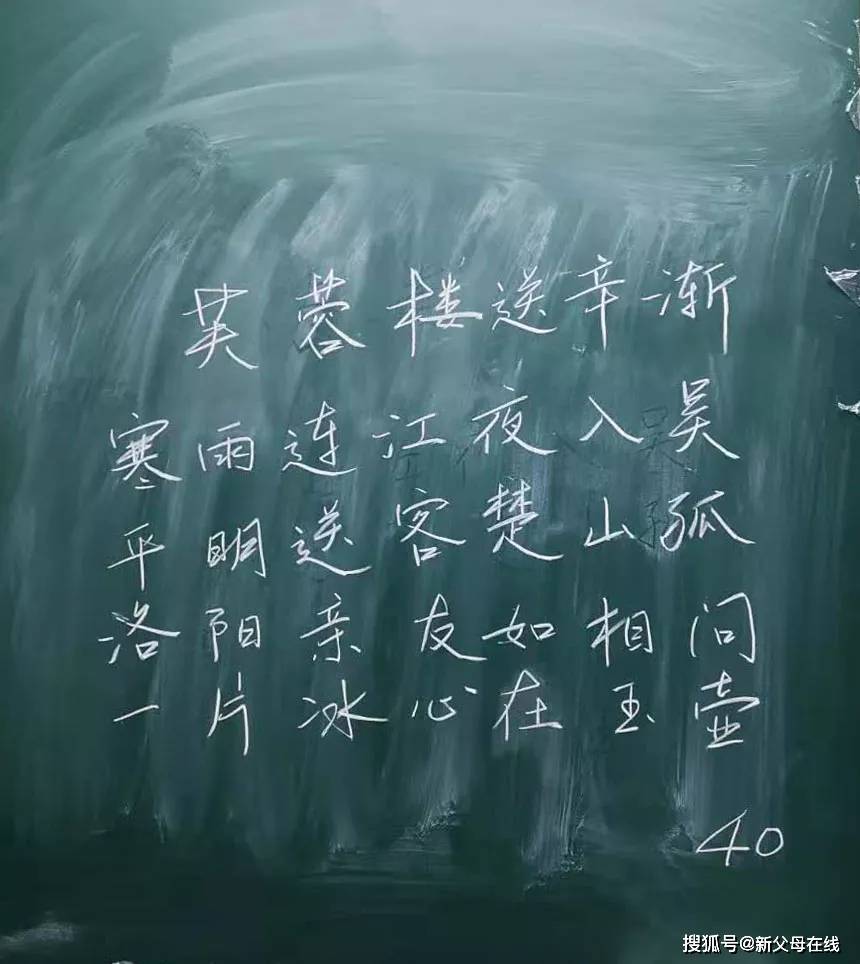 芙蓉楼送辛渐
寒雨连江夜入吴
平明送客楚山孤
洛阳亲友如相问
一片冰心在玉壶
40
搜狐号@新父母在线